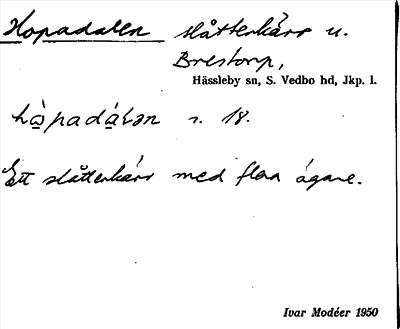 Hopadalen slåtterkärr u.
Brestorp,
Hässleby sn, S. Vedbo hd, Jkp. l.
hòpadálən s. 18.
Ett slåtterkärr med flera ägare.
Ivar Modéer 1950